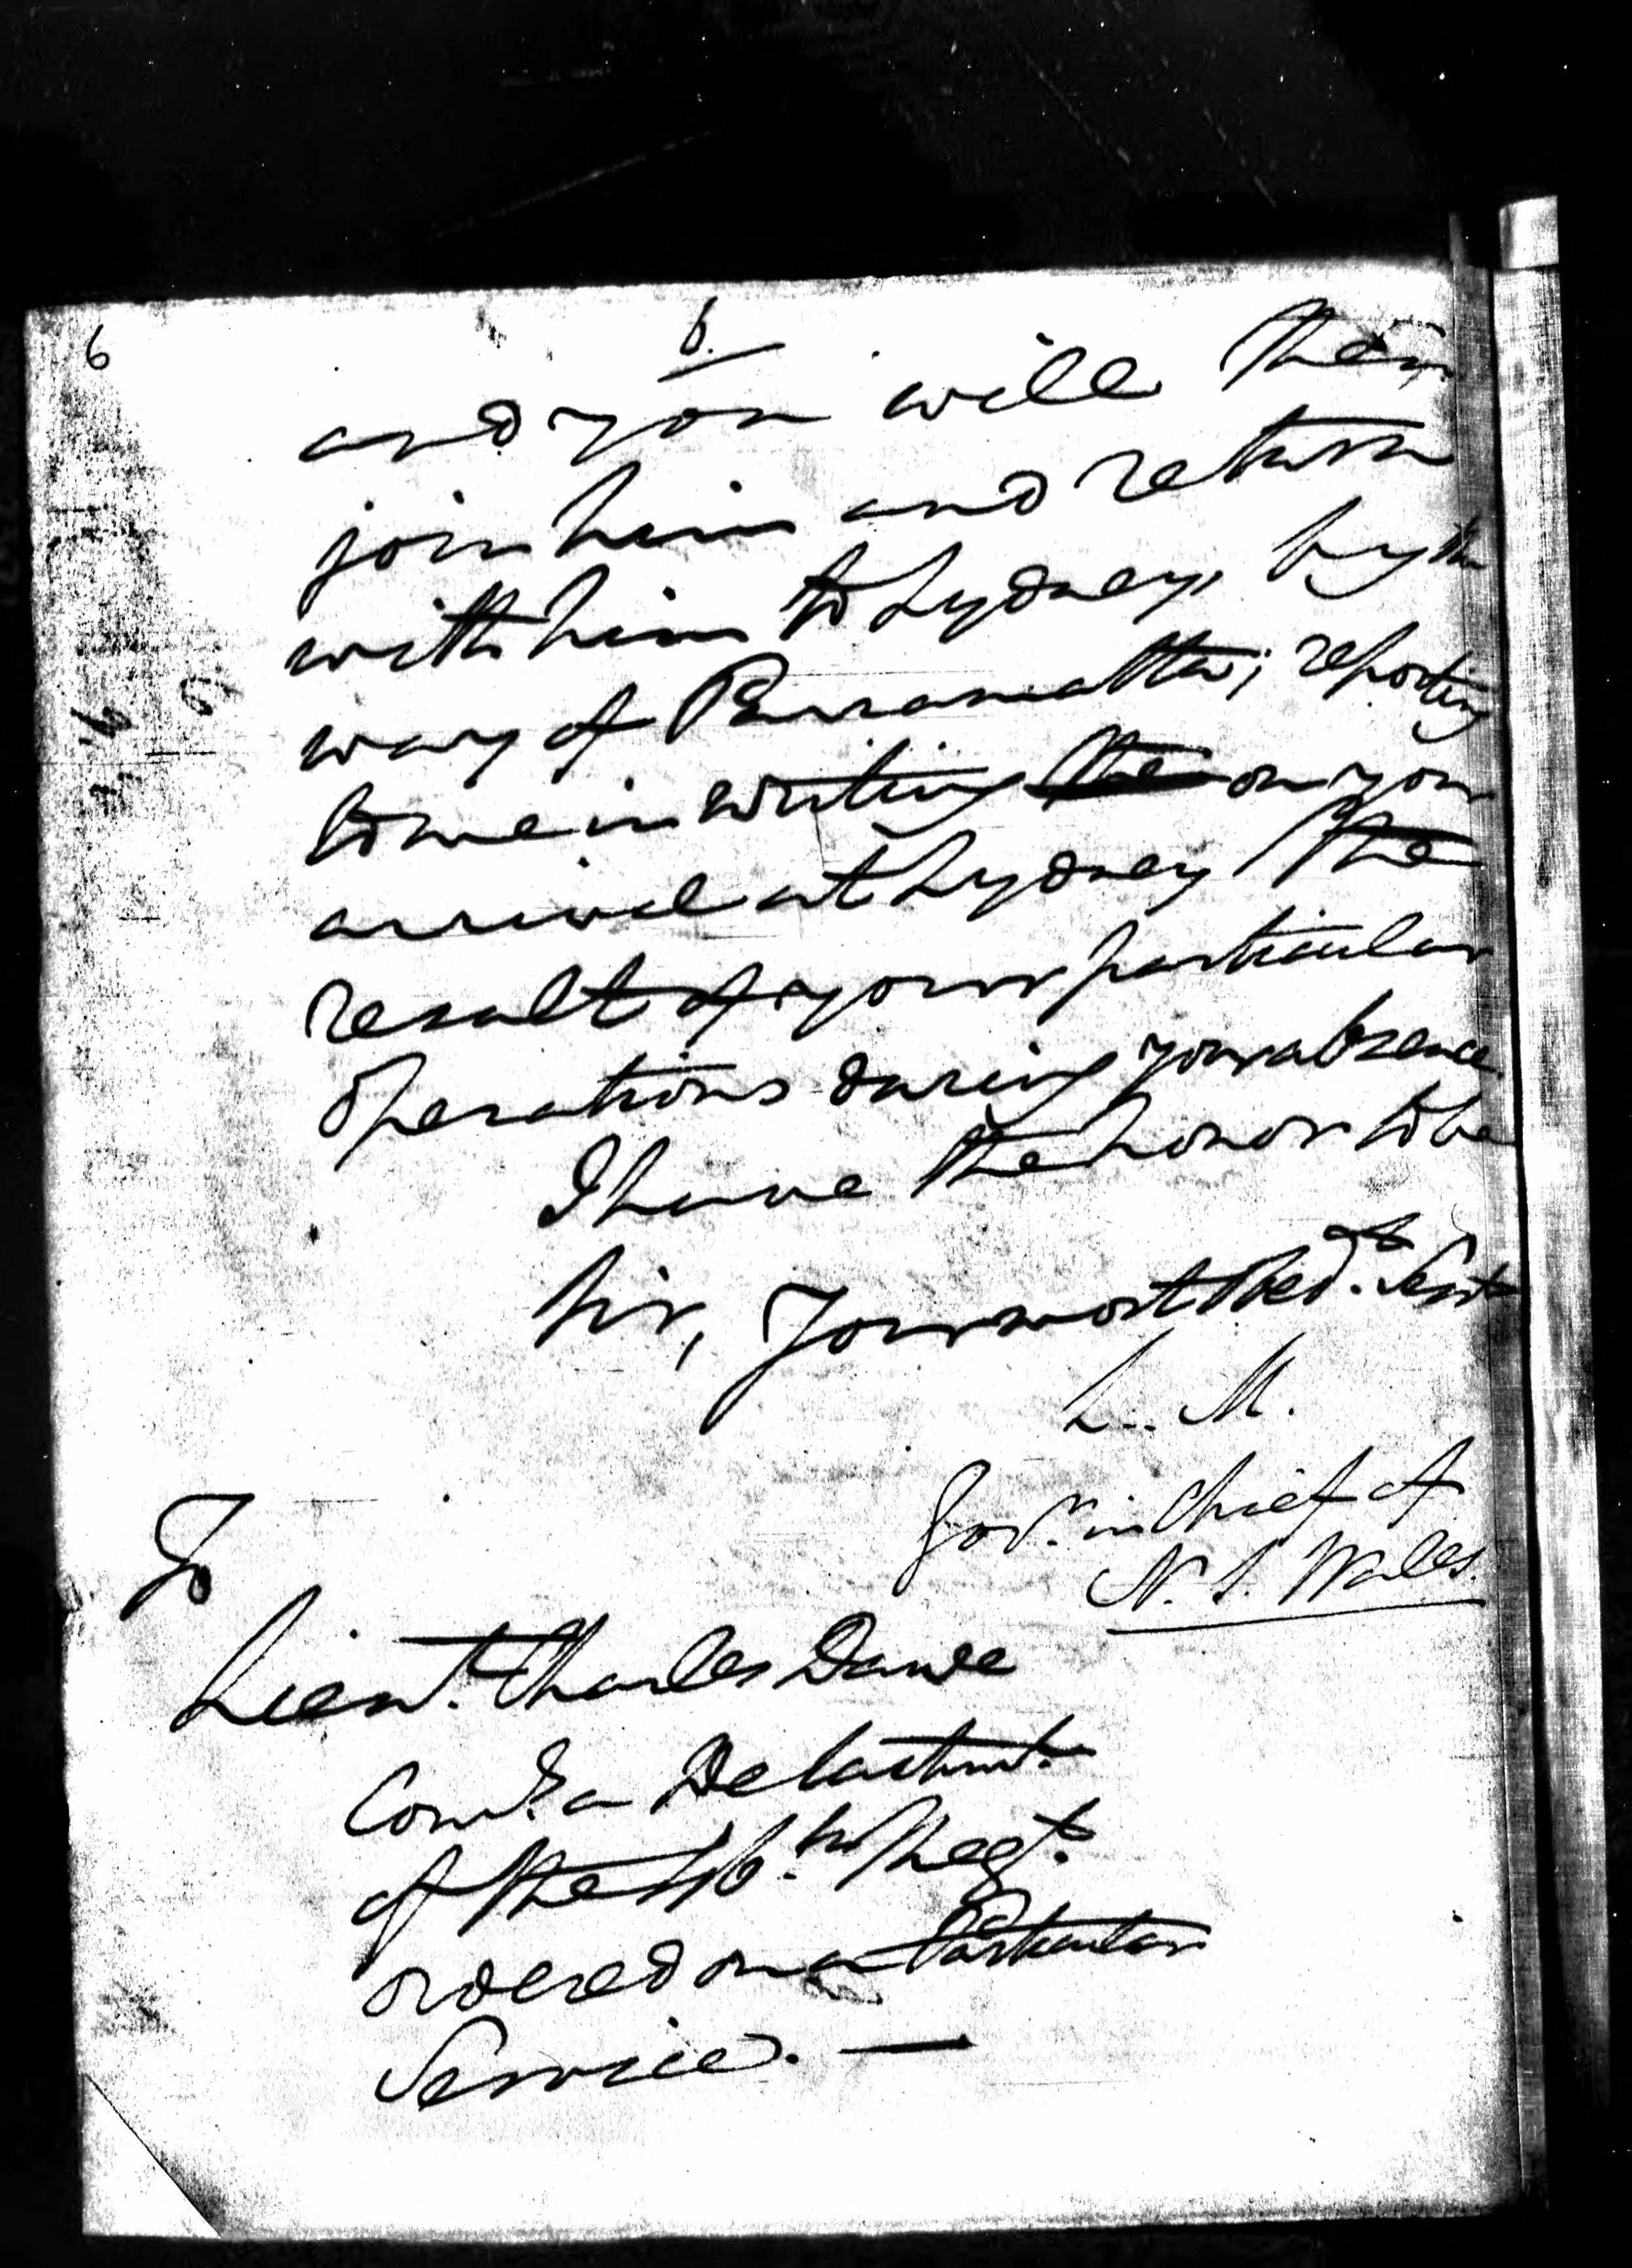 6
6.
and you will then
join him and return
with him to Sydney, by the
way of Parramatta; reporting
to me in writing the on your
arrival at Sydney the
result of your particular
operations during your absence.
I have the honor to be
Sir, Your most Obedt. Servt
L. M.
Govr. in Chief of
N. S. Wales.
To
Lieut. Charles Dawe
Comdg. a Detachmt.
of the 46th. Regt.
ordered on a Particular
Service. —